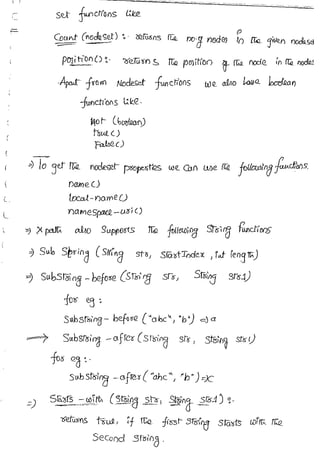 set functions like
Count (nodeset) :- returns the no.of nodes in the given nodeset
position():- returns the position of the node in the nodeset
Apart from Nodeset functions we also have boolean
functions like.
not (boolean)
true()
False()
=> To get the nodeset properties we can use the following functions.
name()
local-name()
namespace-uri()
=> Xpath also supports the following String functions
=> Sub String (String str, StartIndex, int length)
=> SubString-before (String str, String str1)
for eg:
Substring-before ("abc", "b") => a
=> SubString-after (String str, String str1)
for eg:-
SubString-after ("abc", "b") => c
=> Starts-with (String str, String str1) :-
returns true, if the first string starts with the
Second String.